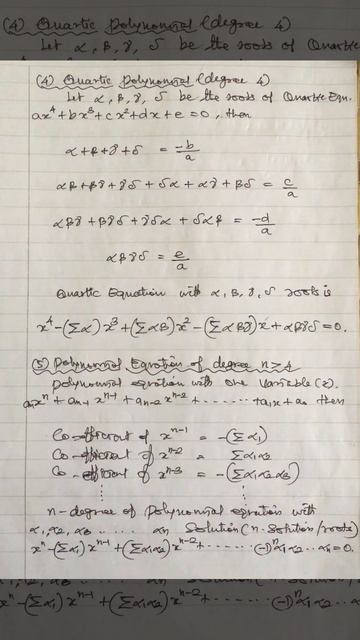 (4) Quartic Polynomial (degree 4)
Let α, β, γ, δ be the roots of Quartic Eqn.
ax⁴+bx³+cx²+dx+e=0, then
α+β+γ+δ = -b/a
αβ+βγ+γδ+δα+αγ+βδ = c/a
αβγ+βγδ+γδα+δαβ = -d/a
αβγδ = e/a
Quartic Equation with α, β, γ, δ roots is
x⁴-(Σα)x³+(Σαβ)x²-(Σαβγ)x+αβγδ=0.
(5) Polynomial Equation of degree n≥4
polynomial equation with one variable (x).
aₙxⁿ+aₙ₋₁xⁿ⁻¹+aₙ₋₂xⁿ⁻²+......+a₁x+a₀ then
Co-efficient of xⁿ⁻¹ = -(Σα₁)
Co-efficient of xⁿ⁻² = Σα₁α₂
Co-efficient of xⁿ⁻³ = -(Σα₁α₂α₃)
n-degree of polynomial equation with
α₁, α₂, α₃ ...... αₙ Solution (n-solution/roots)
xⁿ-(Σα₁)xⁿ⁻¹+(Σα₁α₂)xⁿ⁻²+...... (-1)ⁿα₁α₂..αₙ=0.